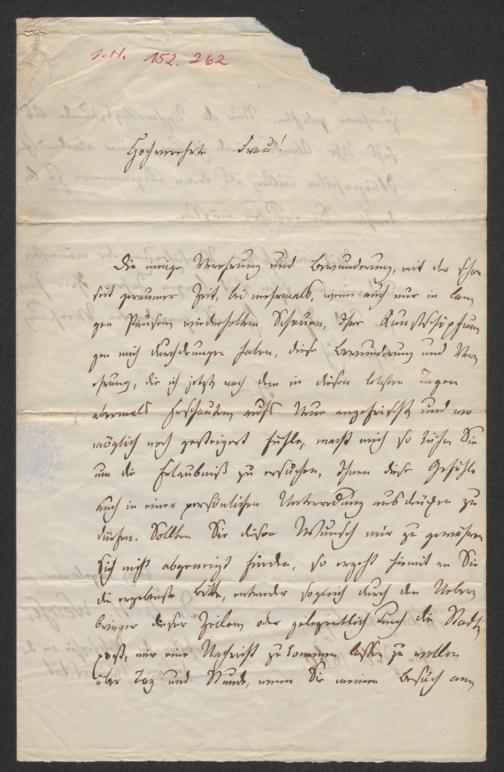 J.N. 152.262
Hochverehrte Frau!
Die innige Verehrung und Bewunderung, mit der schon
seit geraumer Zeit, bei mehrmals, wenn auch nur in lan
gen Pausen wiederholten Schauen, Ihre Kunstschöpfun
gen mich durchdrungen haben, diese Bewunderung und Ver
ehrung, die ich jetzt nach dem in diesen letzten Tagen
abermals Erschauten aufs Neue angefrischt und wo
möglich noch gesteigert fühle, macht mich so kühn Sie
um die Erlaubniß zu ersuchen, Ihnen diese Gefühle
auch in einer persönlichen Unterredung ausdrücken zu
dürfen. Sollten Sie diesen Wunsch mir zu gewähren
sich nicht abgeneigt finden, so ergeht hiemit an Sie
die ergebenste Bitte, entweder sogleich durch den Ueber
bringer dieser Zeilen oder gelegentlich durch die Stadt
post, mir eine Nachricht zukommen lassen zu wollen
über Tag und Stunde, wenn Sie meinen Besuch an